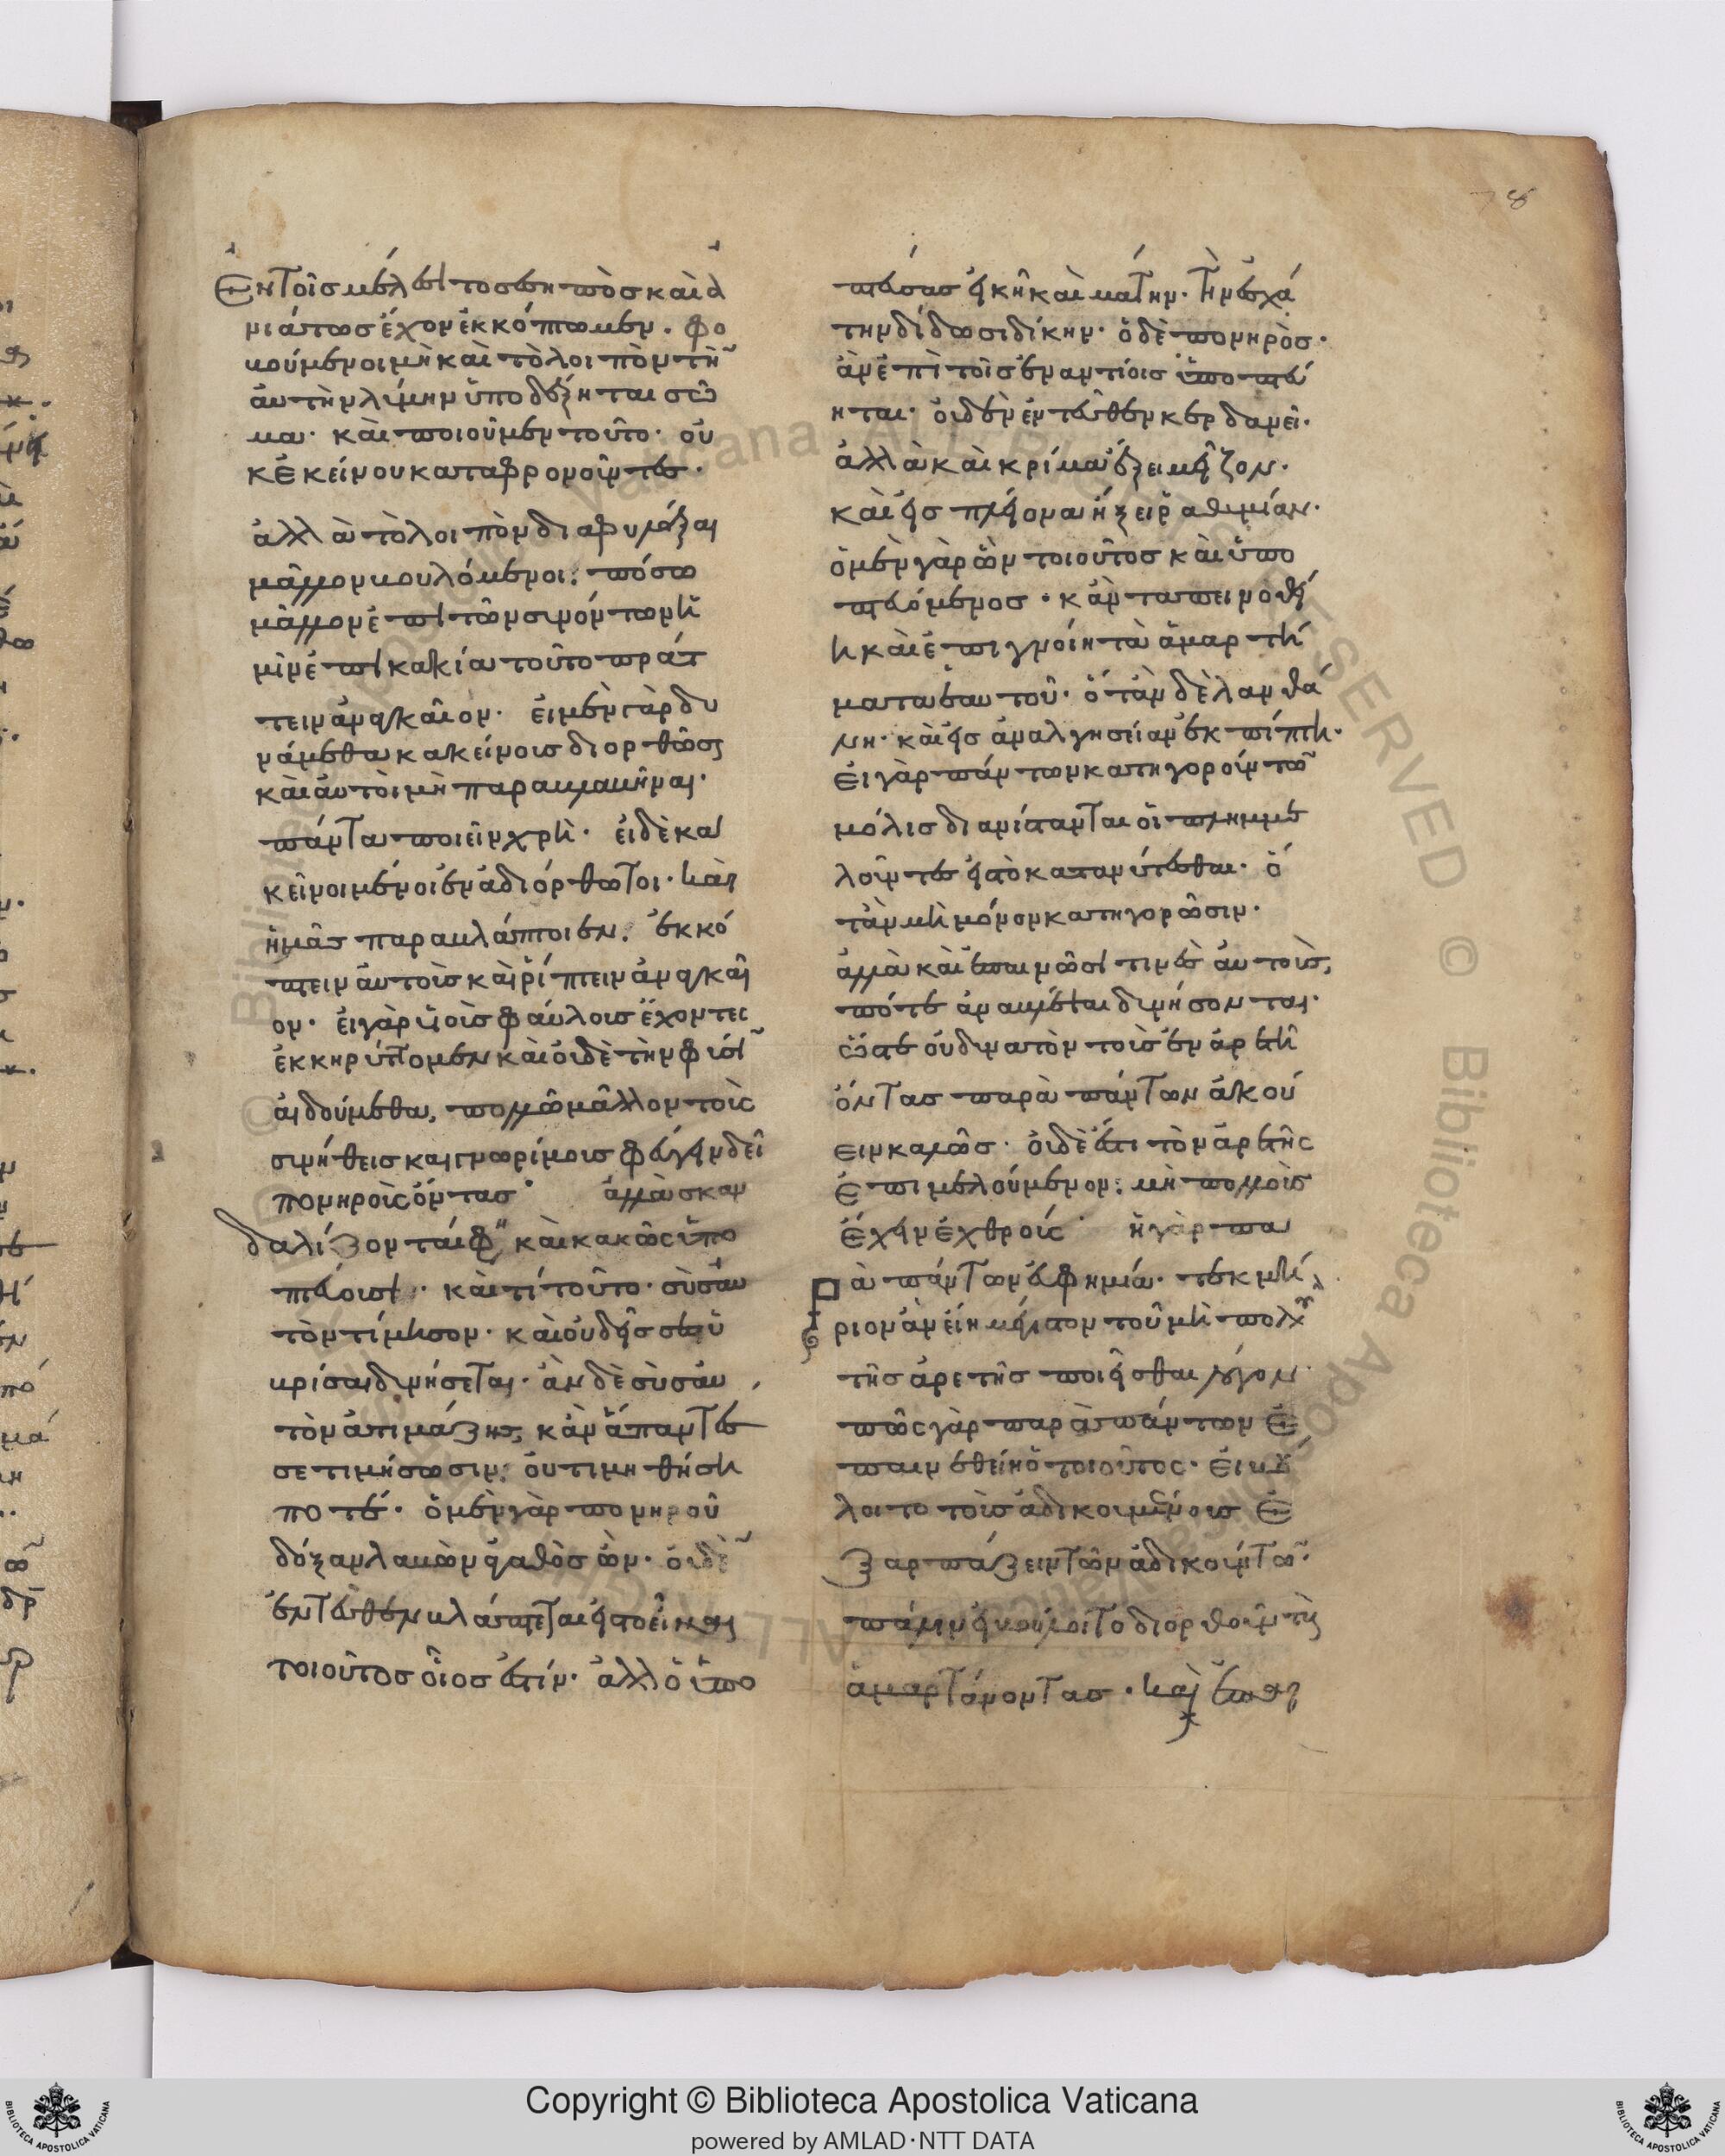 78
Ἐν τοῖς μέλεσι τὸ σεσηπὸς καὶ ἀ
νιάτως ἔχον ἐκκόπτωμεν. φο
βούμενοι μὴ καὶ τὸ λοιπὸν τὴν
αὐτὴν λύμην ὑποδέξηται σῶ
μα. καὶ ποιοῦμεν τοῦτο. οὐ
κ ἐκείνου καταφρονοῦντες.
ἀλλὰ τὸ λοιπὸν διαφυλάξαι
μᾶλλον βουλόμενοι. πόσω
μᾶλλον ἐπὶ τῶν συνόντων ἡ
μῖν ἐπὶ κακία τοῦτο πράτ
τειν ἀναγκαῖον. εἰ μὲν γὰρ δυ
νάμεθα κακείνους διορθῶσαι
καὶ αὐτοὶ μὴ παραβλαβῆναι.
πάντα ποιεῖν χρή. εἰ δὲ κα
κεῖνοι μένοιεν ἀδιόρθωτοι. καὶ
ἡμᾶς παραβλάπτοιεν. ἐκκό
πτειν αὐτοὺς καὶ ῥίπτειν ἀναγκαῖ
ον. εἰ γὰρ υἱοὺς φαύλους ἔχοντες
ἐκκηρύττομεν καὶ οὐδὲ τὴν φύσιν
αἰδούμεθα, πολλῶ μᾶλλον τοὺς
συνήθεις καὶ γνωρίμους φεύγειν δεῖ
πονηροὺς ὄντας. ἀλλὰ σκαν
δαλίζονται φ καὶ κακῶς ὑπο
πτεύουσι. καὶ τί τοῦτο. σὺ σαυ
τὸν τίμησον. καὶ οὐδεὶς σε ὑ
βρίσαι δυνήσεται. ἂν δὲ σὺ σαυ
τὸν ἀτιμάζης, κἂν ἅπαντες
σε τιμήσωσιν, οὐ τιμηθήση
ποτέ. ὁ μὲν γὰρ πονηροῦ
δόξαν λαβὼν ἀγαθὸς ὤν. οὐδὲν
ἐντεῦθεν βλάπτεται εἰς τὸ εἶναι
τοιοῦτος οἷος ἐστίν. ἀλλ' ὁ ὑπο
πτεύσας εἰκῆ καὶ μάτην. τὴν ἐσχά
την δίδωσι δίκην. ὁ δὲ πονηρὸς.
ἂν ἐπὶ τοῖς ἐναντίοις ὑποπτεύ
ηται. οὐδὲν ἐντεῦθεν κερδανεῖ.
ἀλλὰ καὶ κρίμα ἕξει μεῖζον.
καὶ εἰς πλείονα ἥξει ῥαθυμίαν.
ὁ μὲν γὰρ ὢν τοιοῦτος καὶ ὑπο
πτευόμενος. κἂν ταπεινωθεί
η καὶ ἐπιγνοίη τὰ ἁμαρτή
ματα ἑαυτοῦ. ὅταν δὲ λανθά
νη. καὶ εἰς ἀναλγησίαν ἐκπίπτει.
εἰ γὰρ πάντων κατηγορούντων
μόλις διανίστανται οἱ πλημμε
λοῦντες εἰς τὸ κατανύττεσθαι. ὅ
ταν μὴ μόνον κατηγορῶσιν.
ἀλλὰ καὶ ἐπαινῶσί τινες αὐτοὺς,
πότε ἀναβλέψαι δυνήσονται.
ὥστε οὐ δυνατὸν τοὺς ἐν ἀρετῆ
ὄντας παρὰ πάντων ἀκού
ειν καλῶς. οὐδέ ἐστι τὸν ἀρετῆς
ἐπιμελούμενον. μὴ πολλοὺς
ἔχειν ἐχθρούς. ἡ γὰρ πα
ρὰ πάντων εὐφημία. τεκμή
ριον ἂν εἴη μέγιστον τοῦ μὴ πολὺν
τῆς ἀρετῆς ποιεῖσθαι λόγον.
πῶς γὰρ παρὰ πάντων ἐ
παινεθείη ὁ τοιοῦτος. εἰ βού
λοιτο τοὺς ἀδικουμένους ἐ
ξαρπάζειν τῶν ἀδικούντων.
πάλιν εἰ βούλοιτο διορθοῦν τοὺς
ἁμαρτάνοντας. καὶ ἐπαι